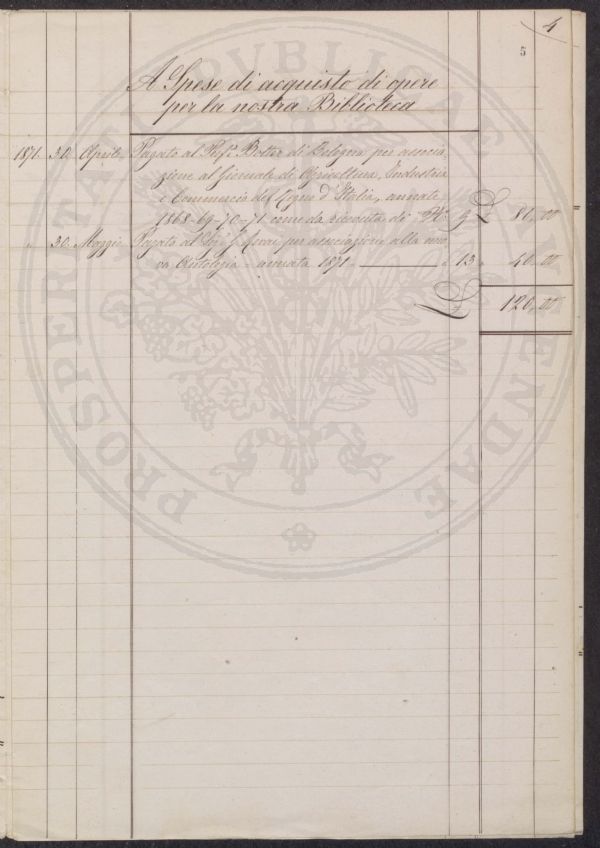 4
5
A Spese di acquisto di opere
per la nostra Biblioteca
1871 30 Aprile Pagato al Prof.e Botter di Bologna per associa
zione al Giornale di Agricoltura, Industria
e Commercio del Regno d'Italia, annate
1868-69-70-71 come da ricevuta di N.° 9 L 80,00
" 30 Maggio Pagato al per associazione alla nuo
va Antologia - annata 1871 " 13 " 40,00
L 120,00
PROSPERITATI PVBLICAE AVGENDAE